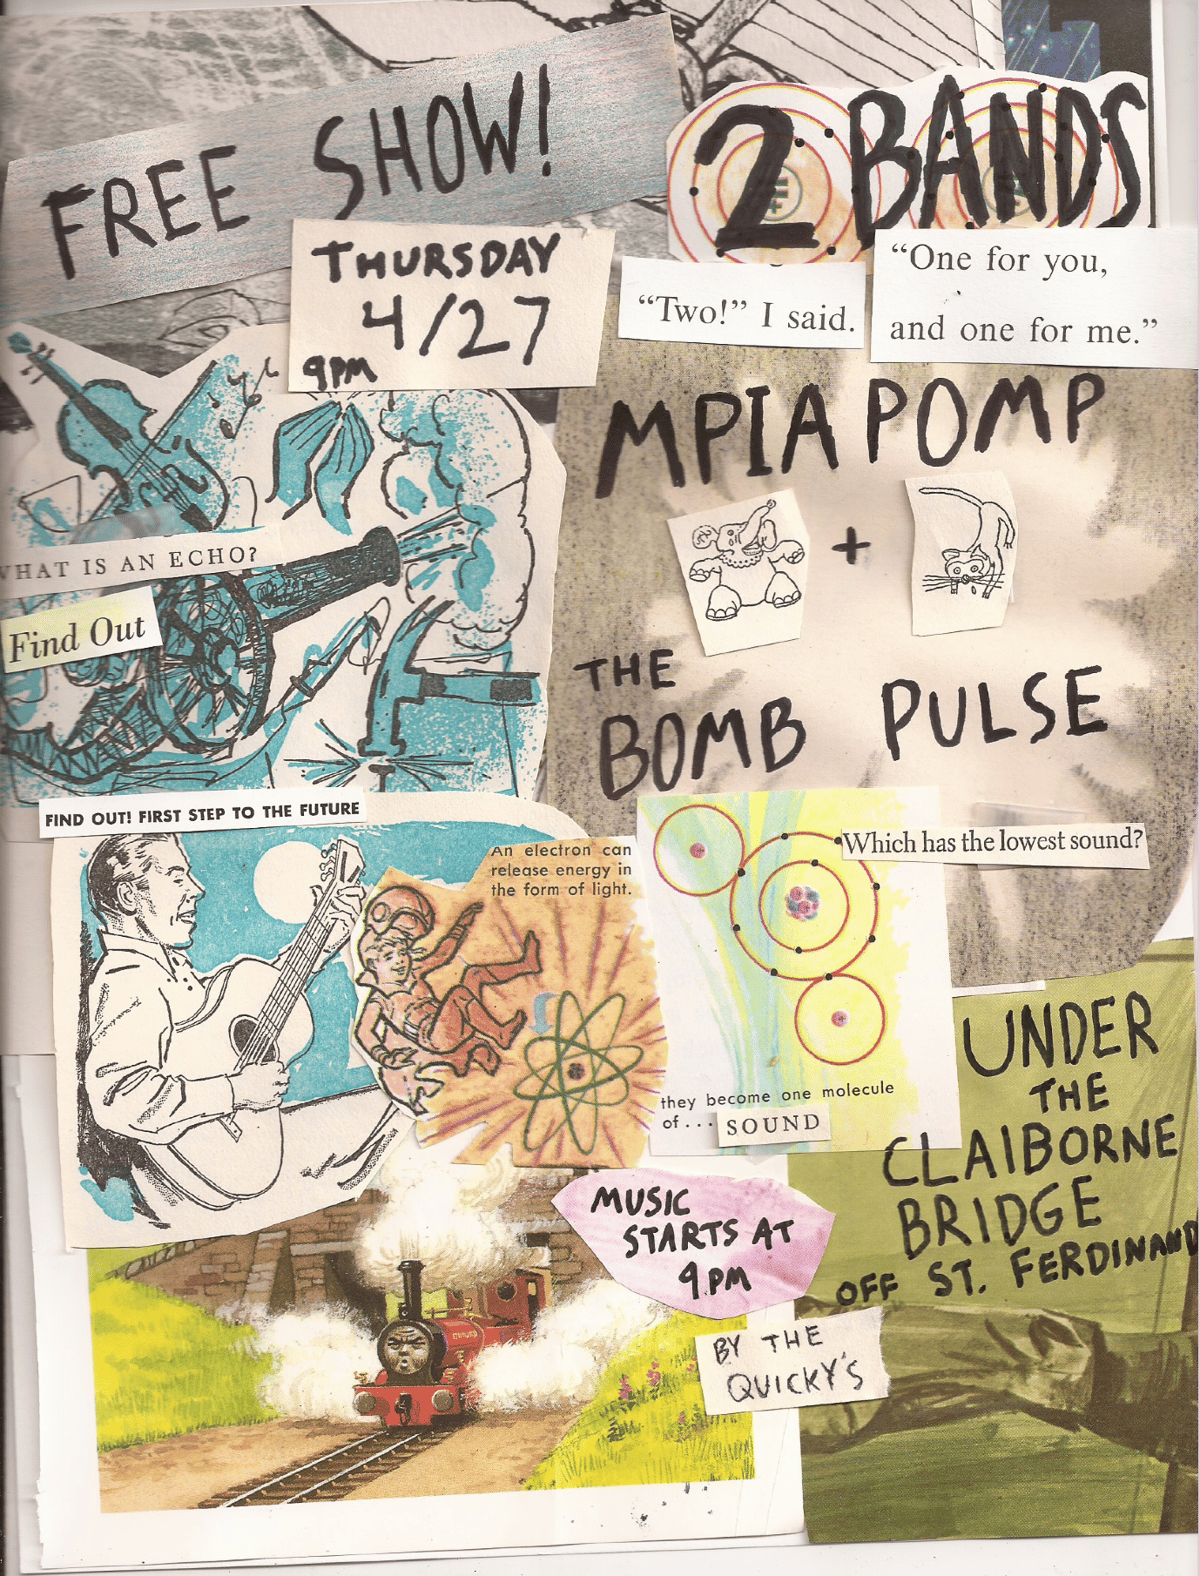 FREE SHOW!
2 BANDS
THURSDAY
4/27
9PM
"Two!" I said.
"One for you,
and one for me."
MPIA POMP
+
THE
BOMB PULSE
WHAT IS AN ECHO?
Find Out
FIND OUT! FIRST STEP TO THE FUTURE
An electron can
release energy in
the form of light.
Which has the lowest sound?
they become one molecule
of... SOUND
UNDER
THE
CLAIBORNE
BRIDGE
OFF ST. FERDINAND
MUSIC
STARTS AT
9PM
BY THE
QUICKY'S